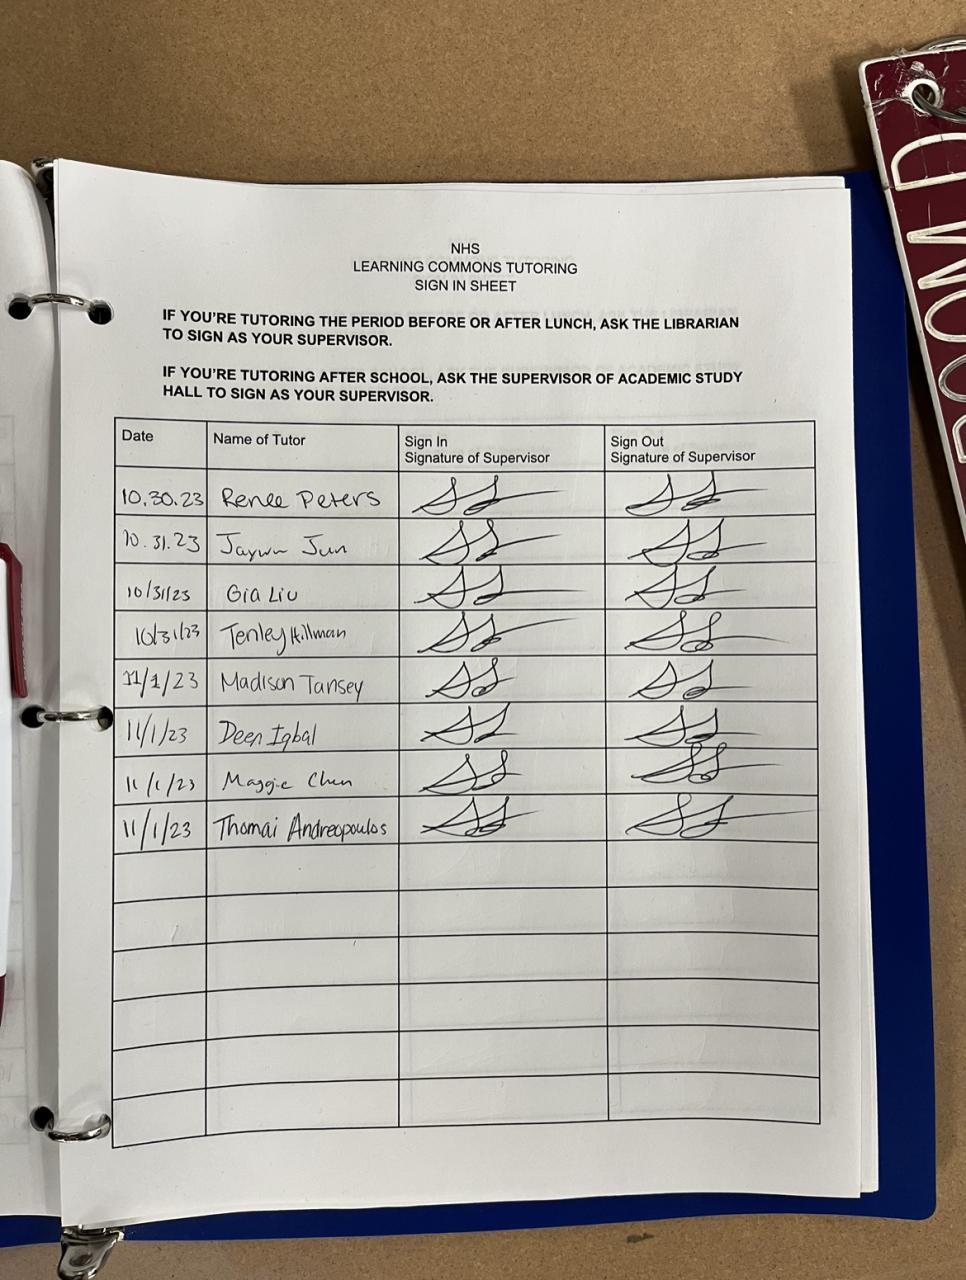 NHS
LEARNING COMMONS TUTORING
SIGN IN SHEET
IF YOU'RE TUTORING THE PERIOD BEFORE OR AFTER LUNCH, ASK THE LIBRARIAN
TO SIGN AS YOUR SUPERVISOR.
IF YOU'RE TUTORING AFTER SCHOOL, ASK THE SUPERVISOR OF ACADEMIC STUDY
HALL TO SIGN AS YOUR SUPERVISOR.
Date Name of Tutor Sign In Signature of Supervisor Sign Out Signature of Supervisor
10.30.23 Renee Peters
10.31.23 Jaywn Jun
10/31/23 Gia Liu
10/31/23 Tenley Hillman
11/1/23 Madison Tansey
11/1/23 Deen Iqbal
11/1/23 Maggie Chen
11/1/23 Thomai Andreopoulos